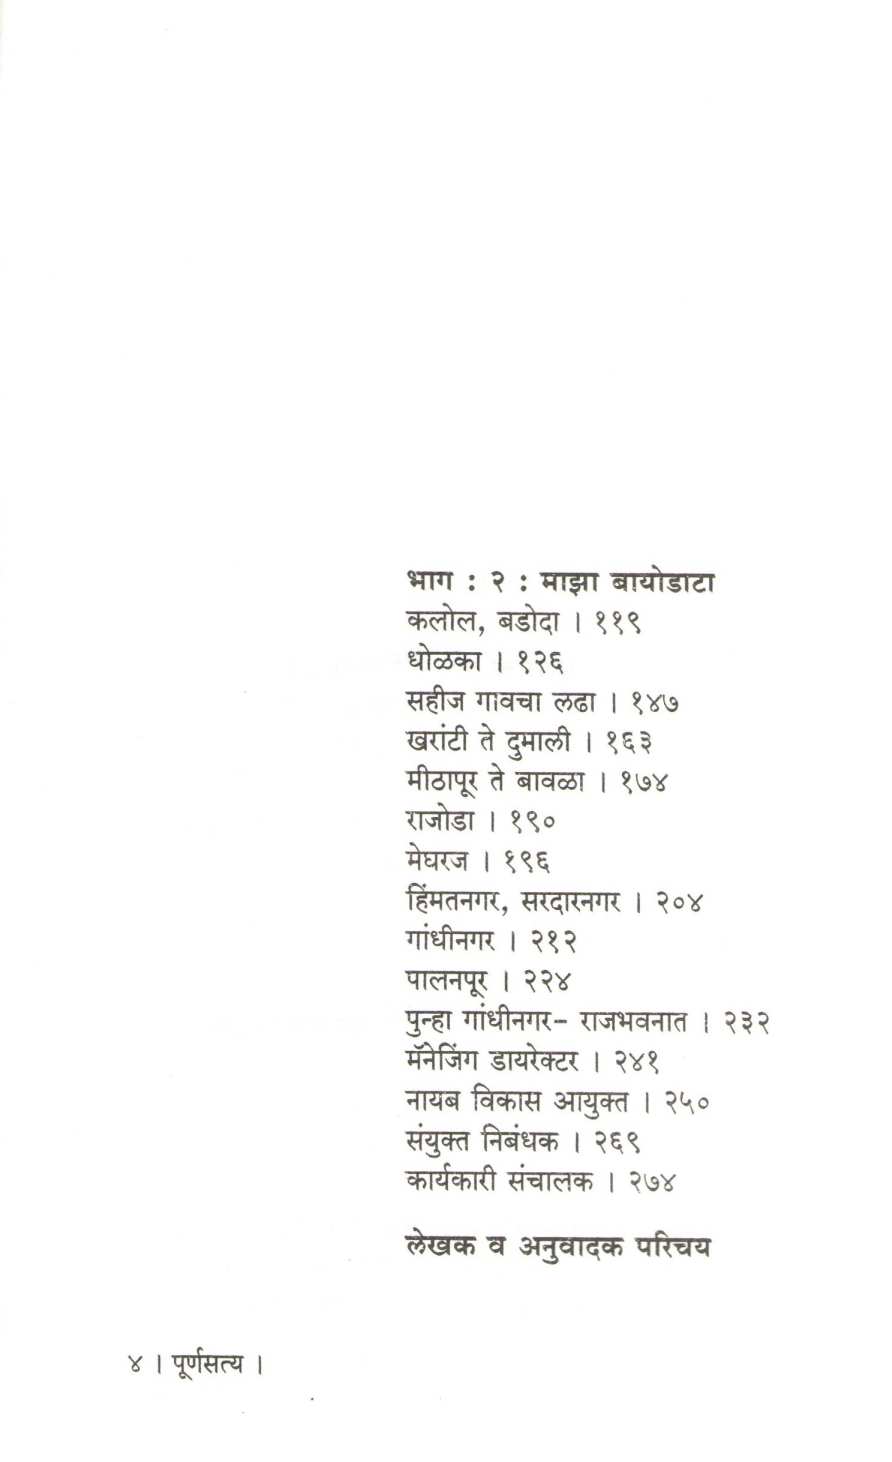 भाग : २ : माझा बायोडाटा
कलोल, बडोदा । ११९
धोळका । १२६
सहीज गावचा लढा । १४७
खरांटी ते दुमाली । १६३
मीठापूर ते बावळा । १७४
राजोडा । १९०
मेघरज । १९६
हिंमतनगर, सरदारनगर । २०४
गांधीनगर । २१२
पालनपूर । २२४
पुन्हा गांधीनगर- राजभवनात । २३२
मॅनेजिंग डायरेक्टर । २४१
नायब विकास आयुक्त । २५०
संयुक्त निबंधक । २६९
कार्यकारी संचालक । २७४
लेखक व अनुवादक परिचय
४ । पूर्णसत्य ।